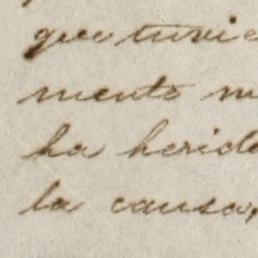 que tuvie
mente m
ha herid
la causa,